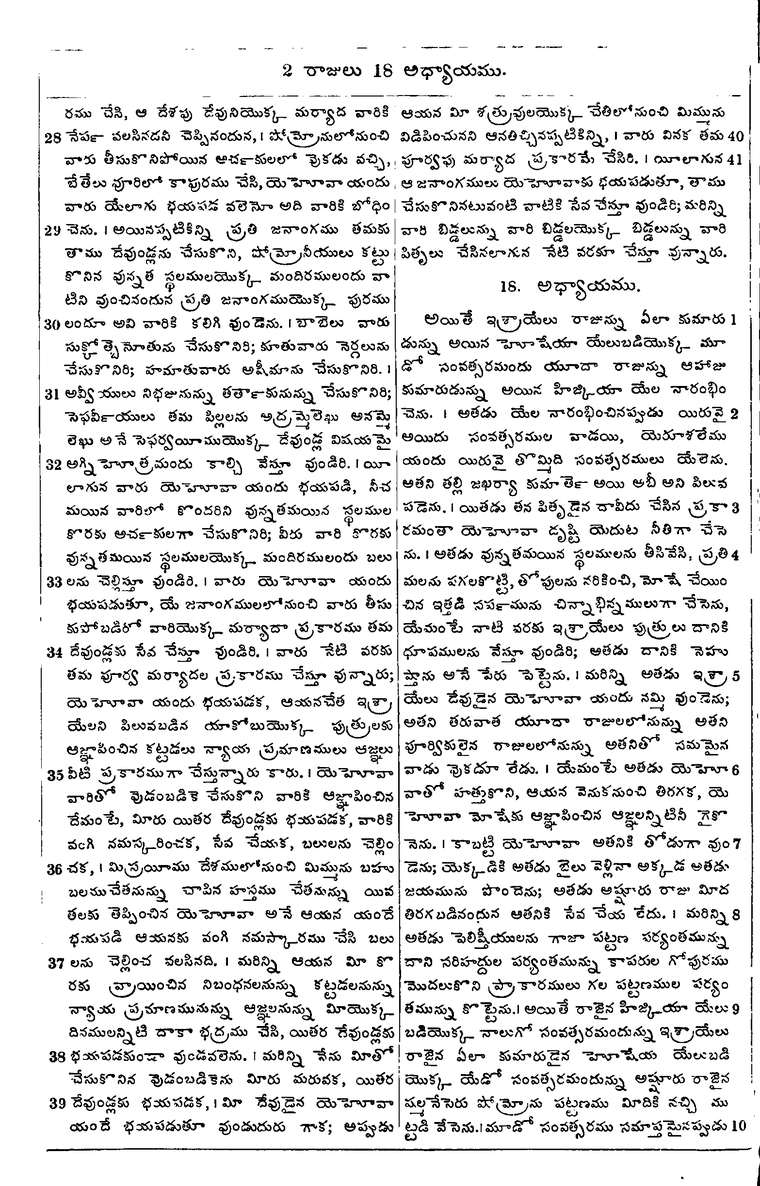 2 రాజులు 18 అధ్యాయము.
రము చేసి, ఆ దేశపు దేవునియొక్క మర్యాద వారికి
28 నేర్ప వలసినదని చెప్పినందున, । షోమ్రోనులోనుంచి
వారు తీసుకొనిపోయిన అర్చకులలో వుకడు వచ్చి,
బేతేలు వూరిలో కాపురము చేసి, యెహోవా యందు
వారు యేలాగు భయపడ వలెనో అది వారికి బోధిం
29 చెను. । అయినప్పటికిన్ని ప్రతి జనాంగము తమకు
తాము దేవుండ్లను చేసుకొని, షోమ్రోనీయులు కట్టు
కొనిన వున్నత స్థలములయొక్క మందిరములందు వా
టిని వుంచినందున ప్రతి జనాంగముయొక్క పురము
30 లందూ అవి వారికి కలిగి వుండెను. । బాబెలు వారు
సుక్కోత్బెనోతును చేసుకొనిరి; కూతువారు నెర్గలును
చేసుకొనిరి; హమాతువారు అషీమాను చేసుకొనిరి. ।
31 అవ్వీయులు నిభజునున్ను తర్తాకునున్ను చేసుకొనిరి;
సెఫర్వీయులు తమ పిల్లలను అద్రమ్మెలెఖు అనమ్మె
లెఖు అనే సెఫర్వయీముయొక్క దేవుండ్ల విషయమై
32 అగ్నిహోత్రమందు కాల్చి వేస్తూ వుండిరి. । యీ
లాగున వారు యెహోవా యందు భయపడి, నీచ
మయిన వారిలో కొందరిని వున్నతమయిన స్థలముల
కొరకు అర్చకులగా చేసుకొనిరి; వీరు వారి కొరకు
వున్నతమయిన స్థలములయొక్క మందిరములందు బలు
33 లను చెల్లిస్తూ వుండిరి. । వారు యెహోవా యందు
భయపడుతూ, యే జనాంగములలోనుంచి వారు తీసు
కుపోబడిరో వారియొక్క మర్యాదా ప్రకారము తమ
34 దేవుండ్లకు సేవ చేస్తూ వుండిరి. । వారు నేటి వరకు
తమ పూర్వ మర్యాదల ప్రకారము చేస్తూ వున్నారు;
యెహోవా యందు భయపడక, ఆయనచేత ఇశ్రా
యేలని పిలువబడిన యాకోబుయొక్క పుత్రులకు
ఆజ్ఞాపించిన కట్టడలు న్యాయ ప్రమాణములు ఆజ్ఞలు
35 వీటి ప్రకారముగా చేస్తున్నారు కారు. । యెహోవా
వారితో వుడంబడికె చేసుకొని వారికి ఆజ్ఞాపించిన
దేమంటే, మీరు యితర దేవుండ్లకు భయపడక, వారికి
వంగి నమస్కరించక, సేవ చేయక, బలులను చెల్లిం
36 చక, । మిస్రయీము దేశములోనుంచి మిమ్మును బహు
బలముచేతనున్ను చాపిన హస్తము చేతనున్ను యివ
తలకు తెప్పించిన యెహోవా అనే ఆయన యందే
భయపడి ఆయనకు వంగి నమస్కారము చేసి బలు
37 లను చెల్లించ వలసినది. । మరిన్ని ఆయన మీ కొ
రకు వ్రాయించిన నిబంధనలనున్ను కట్టడలనున్ను
న్యాయ ప్రమాణమునున్ను ఆజ్ఞలనున్ను మీయొక్క
దినములన్నిటి దాకా భద్రము చేసి, యితర దేవుండ్లకు
38 భయపడకుండా వుండవలెను. । మరిన్ని నేను మీతో
చేసుకొనిన వుడంబడికెను మీరు మరువక, యితర
39 దేవుండ్లకు భయపడక, । మీ దేవుడైన యెహోవా
యందే భయపడుతూ వుండుదురు గాక; అప్పుడు
ఆయన మీ శత్రువులయొక్క చేతిలోనుంచి మిమ్మును
విడిపించునని ఆనతిచ్చినప్పటికిన్ని, । వారు వినక తమ 40
పూర్వపు మర్యాద ప్రకారమే చేసిరి. । యీలాగున 41
ఆ జనాంగములు యెహోవాకు భయపడుతూ, తాము
చేసుకొనినటువంటి వాటికి సేవ చేస్తూ వుండిరి; మరిన్ని
వారి బిడ్డలున్ను వారి బిడ్డలయొక్క బిడ్డలున్ను వారి
పితృలు చేసినలాగున నేటి వరకూ చేస్తూ వున్నారు.
18. అధ్యాయము.
అయితే ఇశ్రాయేలు రాజున్ను ఏలా కుమారు 1
డున్ను అయిన హోషేయా యేలుబడియొక్క మూ
డో సంవత్సరమందు యూదా రాజున్ను ఆహాజు
కుమారుడున్ను అయిన హిజ్కియా యేల నారంభిం
చెను. । అతడు యేల నారంభించినప్పుడు యిరువై 2
అయిదు సంవత్సరముల వాడయి, యెరూశలేము
యందు యిరువై తొమ్మిది సంవత్సరములు యేలెను.
అతని తల్లి జఖర్యా కుమార్తె అయి అబీ అని పిలువ
పడెను. । యితడు తన పితృడైన దావీదు చేసిన ప్రకా 3
రమంతా యెహోవా దృష్టి యెదుట నీతిగా చేసె
ను. । అతడు వున్నతమయిన స్థలములను తీసివేసి, ప్రతి 4
మలను పగలకొట్టి, తోపులను నరికించి, మోషే చేయిం
చిన ఇత్తడి సర్పమును చిన్నాభిన్నములుగా చేసెను,
యేమంటే నాటి వరకు ఇశ్రాయేలు పుత్రులు దానికి
ధూపములను వేస్తూ వుండిరి; అతడు దానికి నెహు
ష్తాను అనే పేరు పెట్టెను. । మరిన్ని అతడు ఇశ్రా 5
యేలు దేవుడైన యెహోవా యందు నమ్మి వుండెను;
అతని తరువాత యూదా రాజులలోనున్ను అతని
పూర్వికులైన రాజులలోనున్ను అతనితో సమమైన
వాడు వుకడూ లేడు. । యేమంటే అతడు యెహో 6
వాతో హత్తుకొని, ఆయన వెనుకనుంచి తిరగక, యె
హోవా మోషేకు ఆజ్ఞాపించిన ఆజ్ఞలన్నిటినీ గైకొ
నెను. । కాబట్టి యెహోవా అతనికి తోడుగా వుం 7
డెను; యెక్కడికి అతడు బైలు వెళ్లినా అక్కడ అతడు
జయమును పొందెను; అతడు అష్షూరు రాజు మీద
తిరగబడినందున అతనికి సేవ చేయ లేదు. । మరిన్ని 8
అతడు పెలిష్తీయులను గాజా పట్టణ పర్యంతమున్ను
దాని సరిహద్దుల పర్యంతమున్ను కాపరుల గోపురము
మొదలుకొని ప్రాకారములు గల పట్టణముల పర్యం
తమున్ను కొట్టెను. । అయితే రాజైన హిజ్కియా యేలు 9
బడియొక్క నాలుగో సంవత్సరమందున్ను ఇశ్రాయేలు
రాజైన ఏలా కుమారుడైన హోషేయ యేలుబడి
యొక్క యేడో సంవత్సరమందున్ను అష్షూరు రాజైన
షల్మనేసెరు షోమ్రోను పట్టణము మీదికి వచ్చి ము
ట్టడి వేసెను. । మూడో సంవత్సరము సమాప్తమైనప్పుడు 10